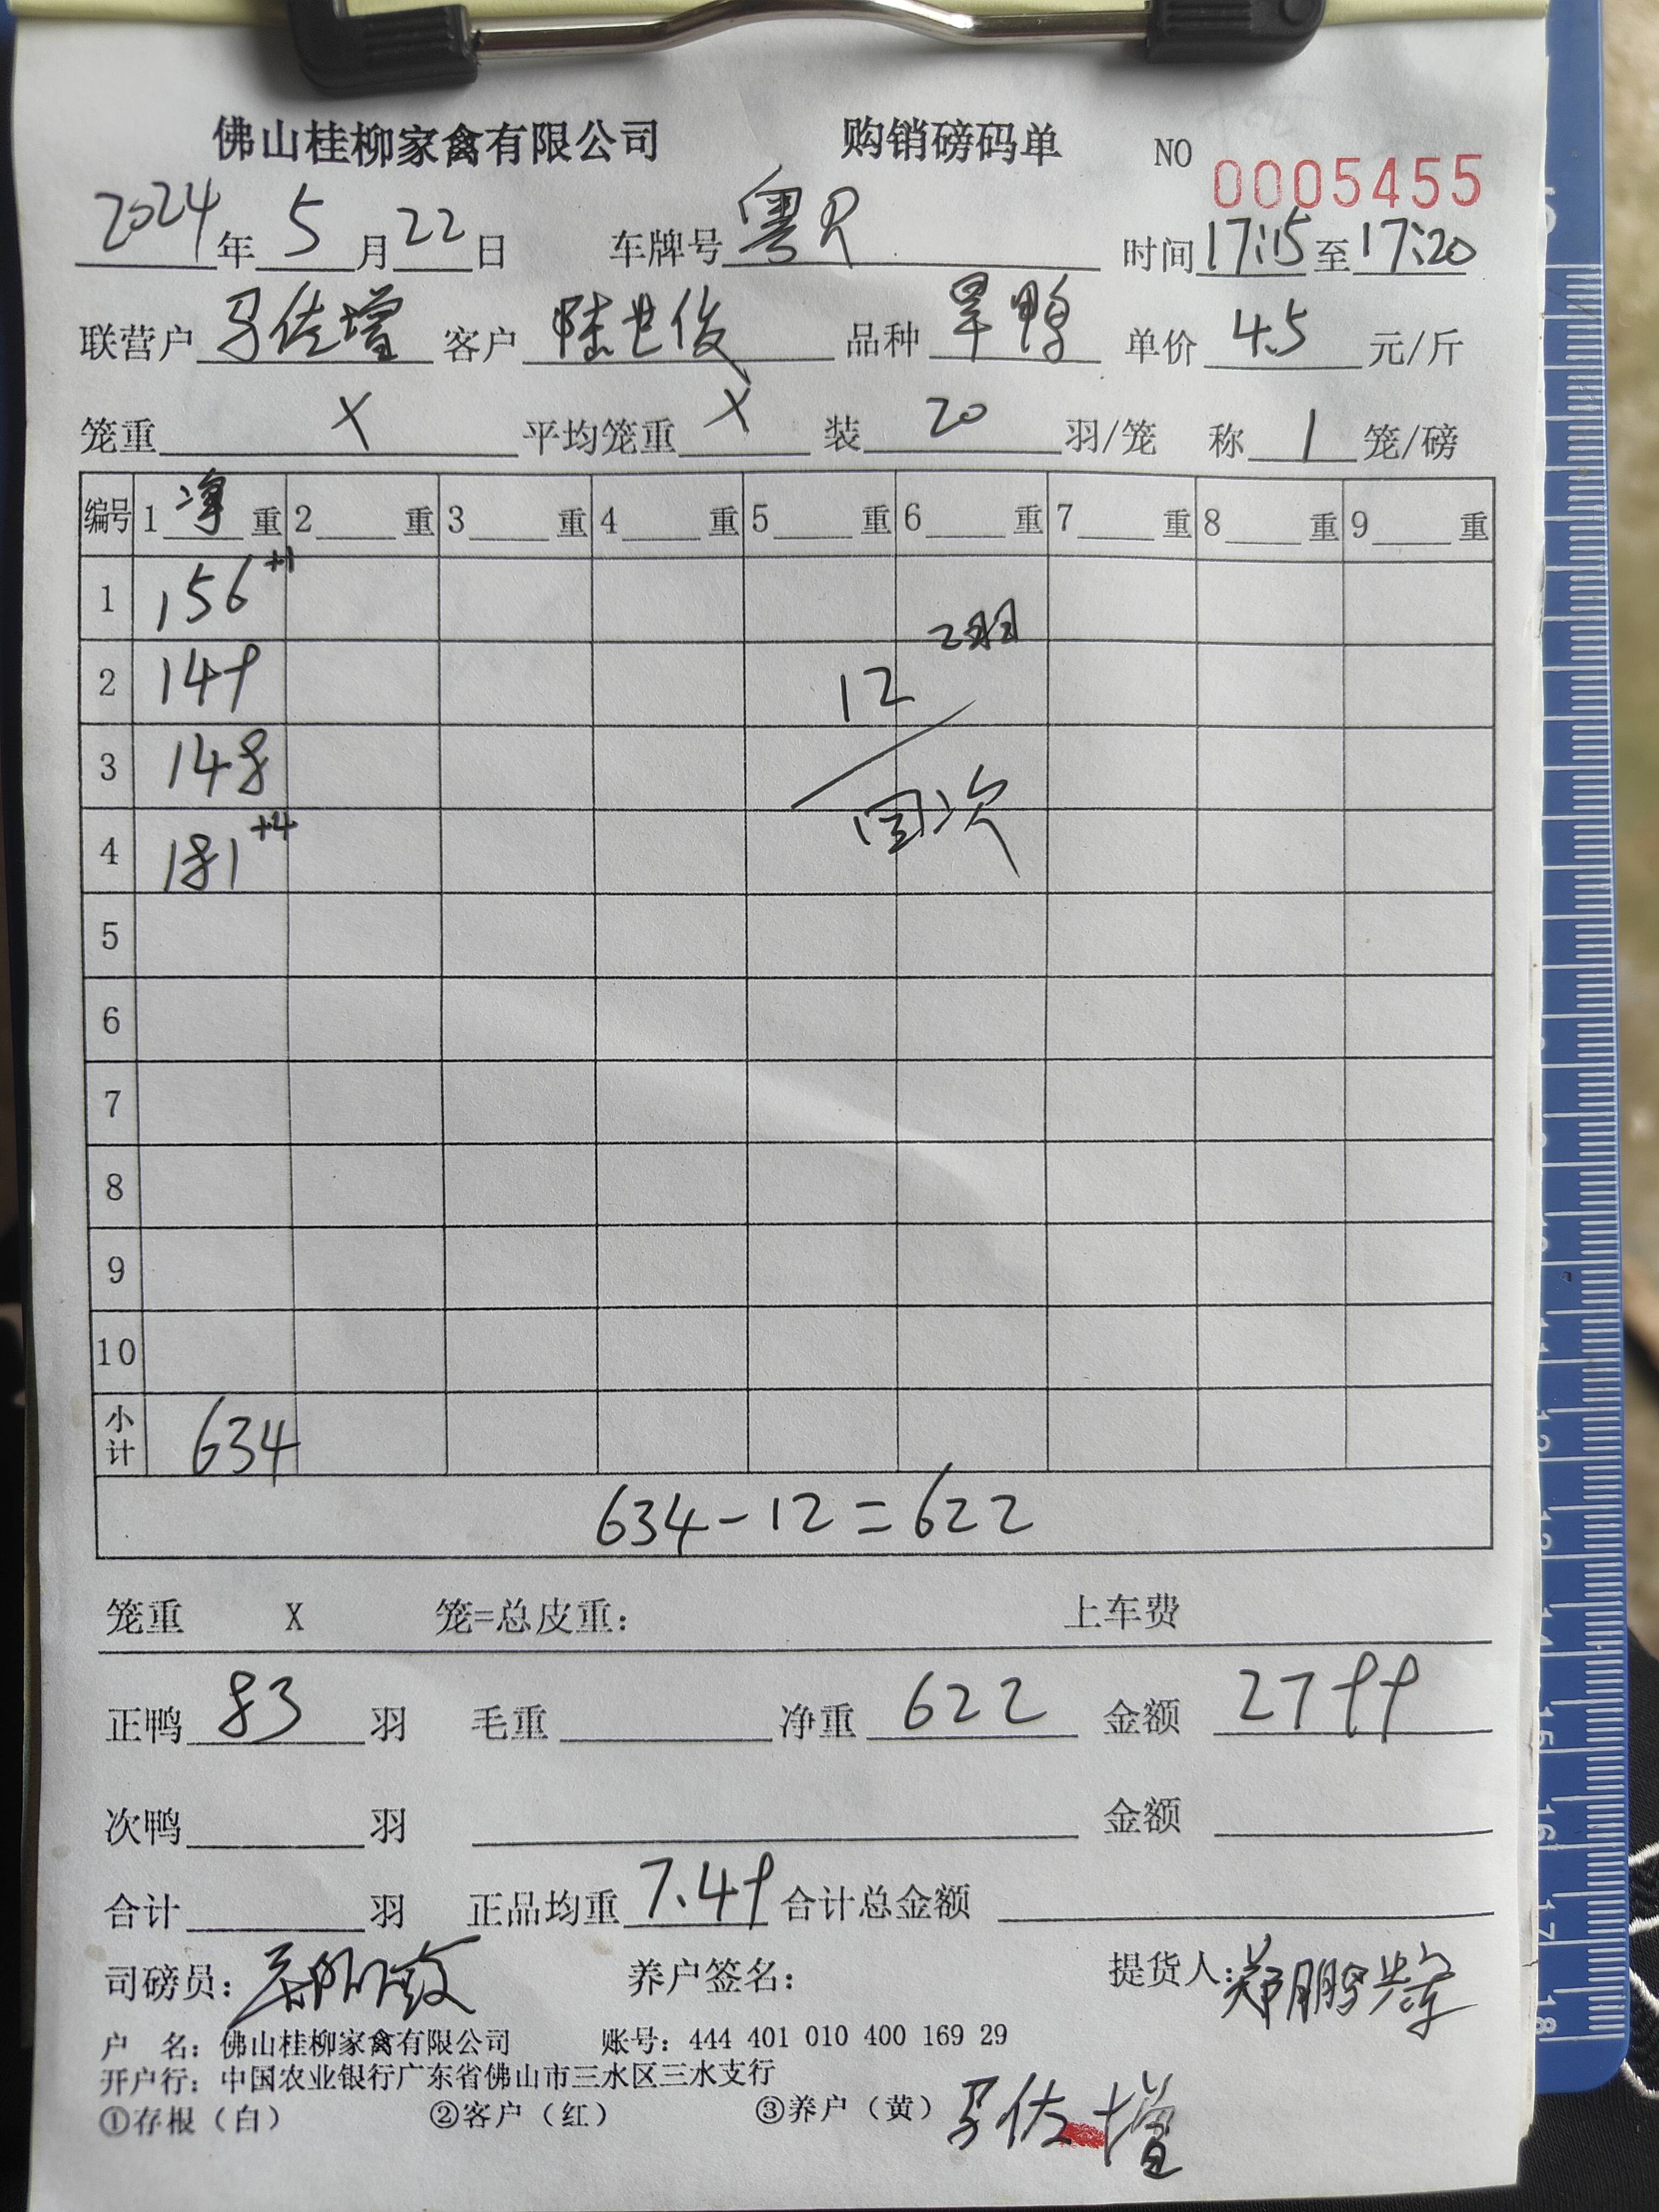 佛山桂柳家禽有限公司 购销磅码单 NO 0005455
2024年5月22日 车牌号粤R 时间17:15至17:20
联营户 马佐增 客户 陆世俊 品种 旱鸭 单价 4.5 元/斤
笼重 X 平均笼重 X 装 20 羽/笼 称 1 笼/磅
编号 1 净 重 2 重 3 重 4 重 5 重 6 重 7 重 8 重 9 重
1 156+1
2羽
2 149 12
3 148
回次
4 181+4
5
6
7
8
9
10
小计 634
634-12=622
笼重 X 笼=总皮重: 上车费
正鸭 83 羽 毛重 净重 622 金额 2799
次鸭 羽 金额
合计 羽 正品均重 7.49 合计总金额
司磅员: 养户签名: 提货人:
户 名: 佛山桂柳家禽有限公司 账号: 444 401 010 400 169 29
开户行: 中国农业银行广东省佛山市三水区三水支行
①存根(白) ②客户(红) ③养户(黄) 马佐增